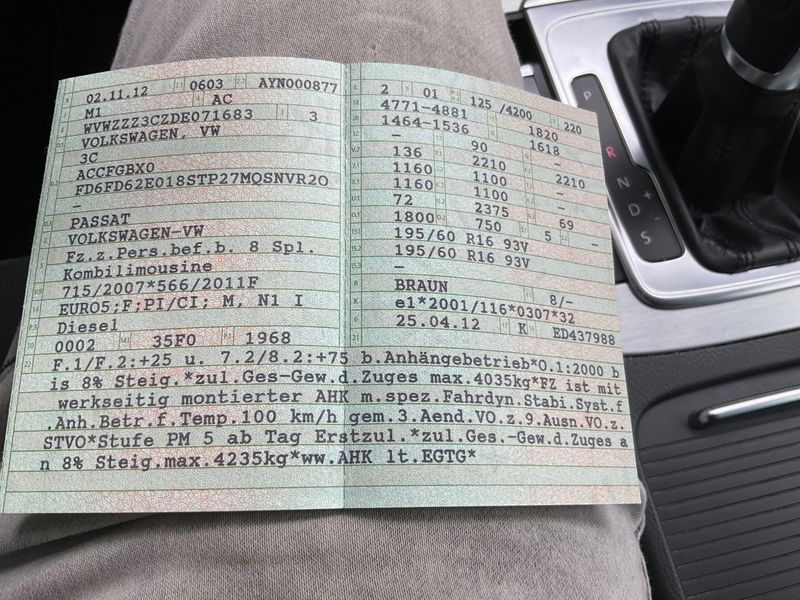 02.11.12 0603 AYN000877
M1 AC
WVWZZZ3CZDE071683 3
VOLKSWAGEN, VW
3C
ACCFGBX0
FD6FD62E018STP27MQSNVR2O
–
PASSAT
VOLKSWAGEN-VW
Fz.z.Pers.bef.b. 8 Spl.
Kombilimousine
715/2007*566/2011F
EURO5;F;PI/CI; M, N1 I
Diesel
0002 35F0 1968
2 01 125 /4200 220
4771-4881 1820
1464-1536 1618
– 90 –
136 2210 2210
1160 1100 –
1160 1100 –
72 2375 69
1800 750 5 –
195/60 R16 93V
195/60 R16 93V
–
BRAUN 8/–
e1*2001/116*0307*32
25.04.12 K ED437988
F.1/F.2:+25 u. 7.2/8.2:+75 b.Anhängebetrieb*O.1:2000 b
is 8% Steig.*zul.Ges-Gew.d.Zuges max.4035kg*FZ ist mit
werkseitig montierter AHK m.spez.Fahrdyn.Stabi.Syst.f
.Anh.Betr.f.Temp.100 km/h gem.3.Aend.VO.z.9.Ausn.VO.z.
STVO*Stufe PM 5 ab Tag Erstzul.*zul.Ges.-Gew.d.Zuges a
n 8% Steig.max.4235kg*ww.AHK lt.EGTG*
P
R
N
D
S
+
-